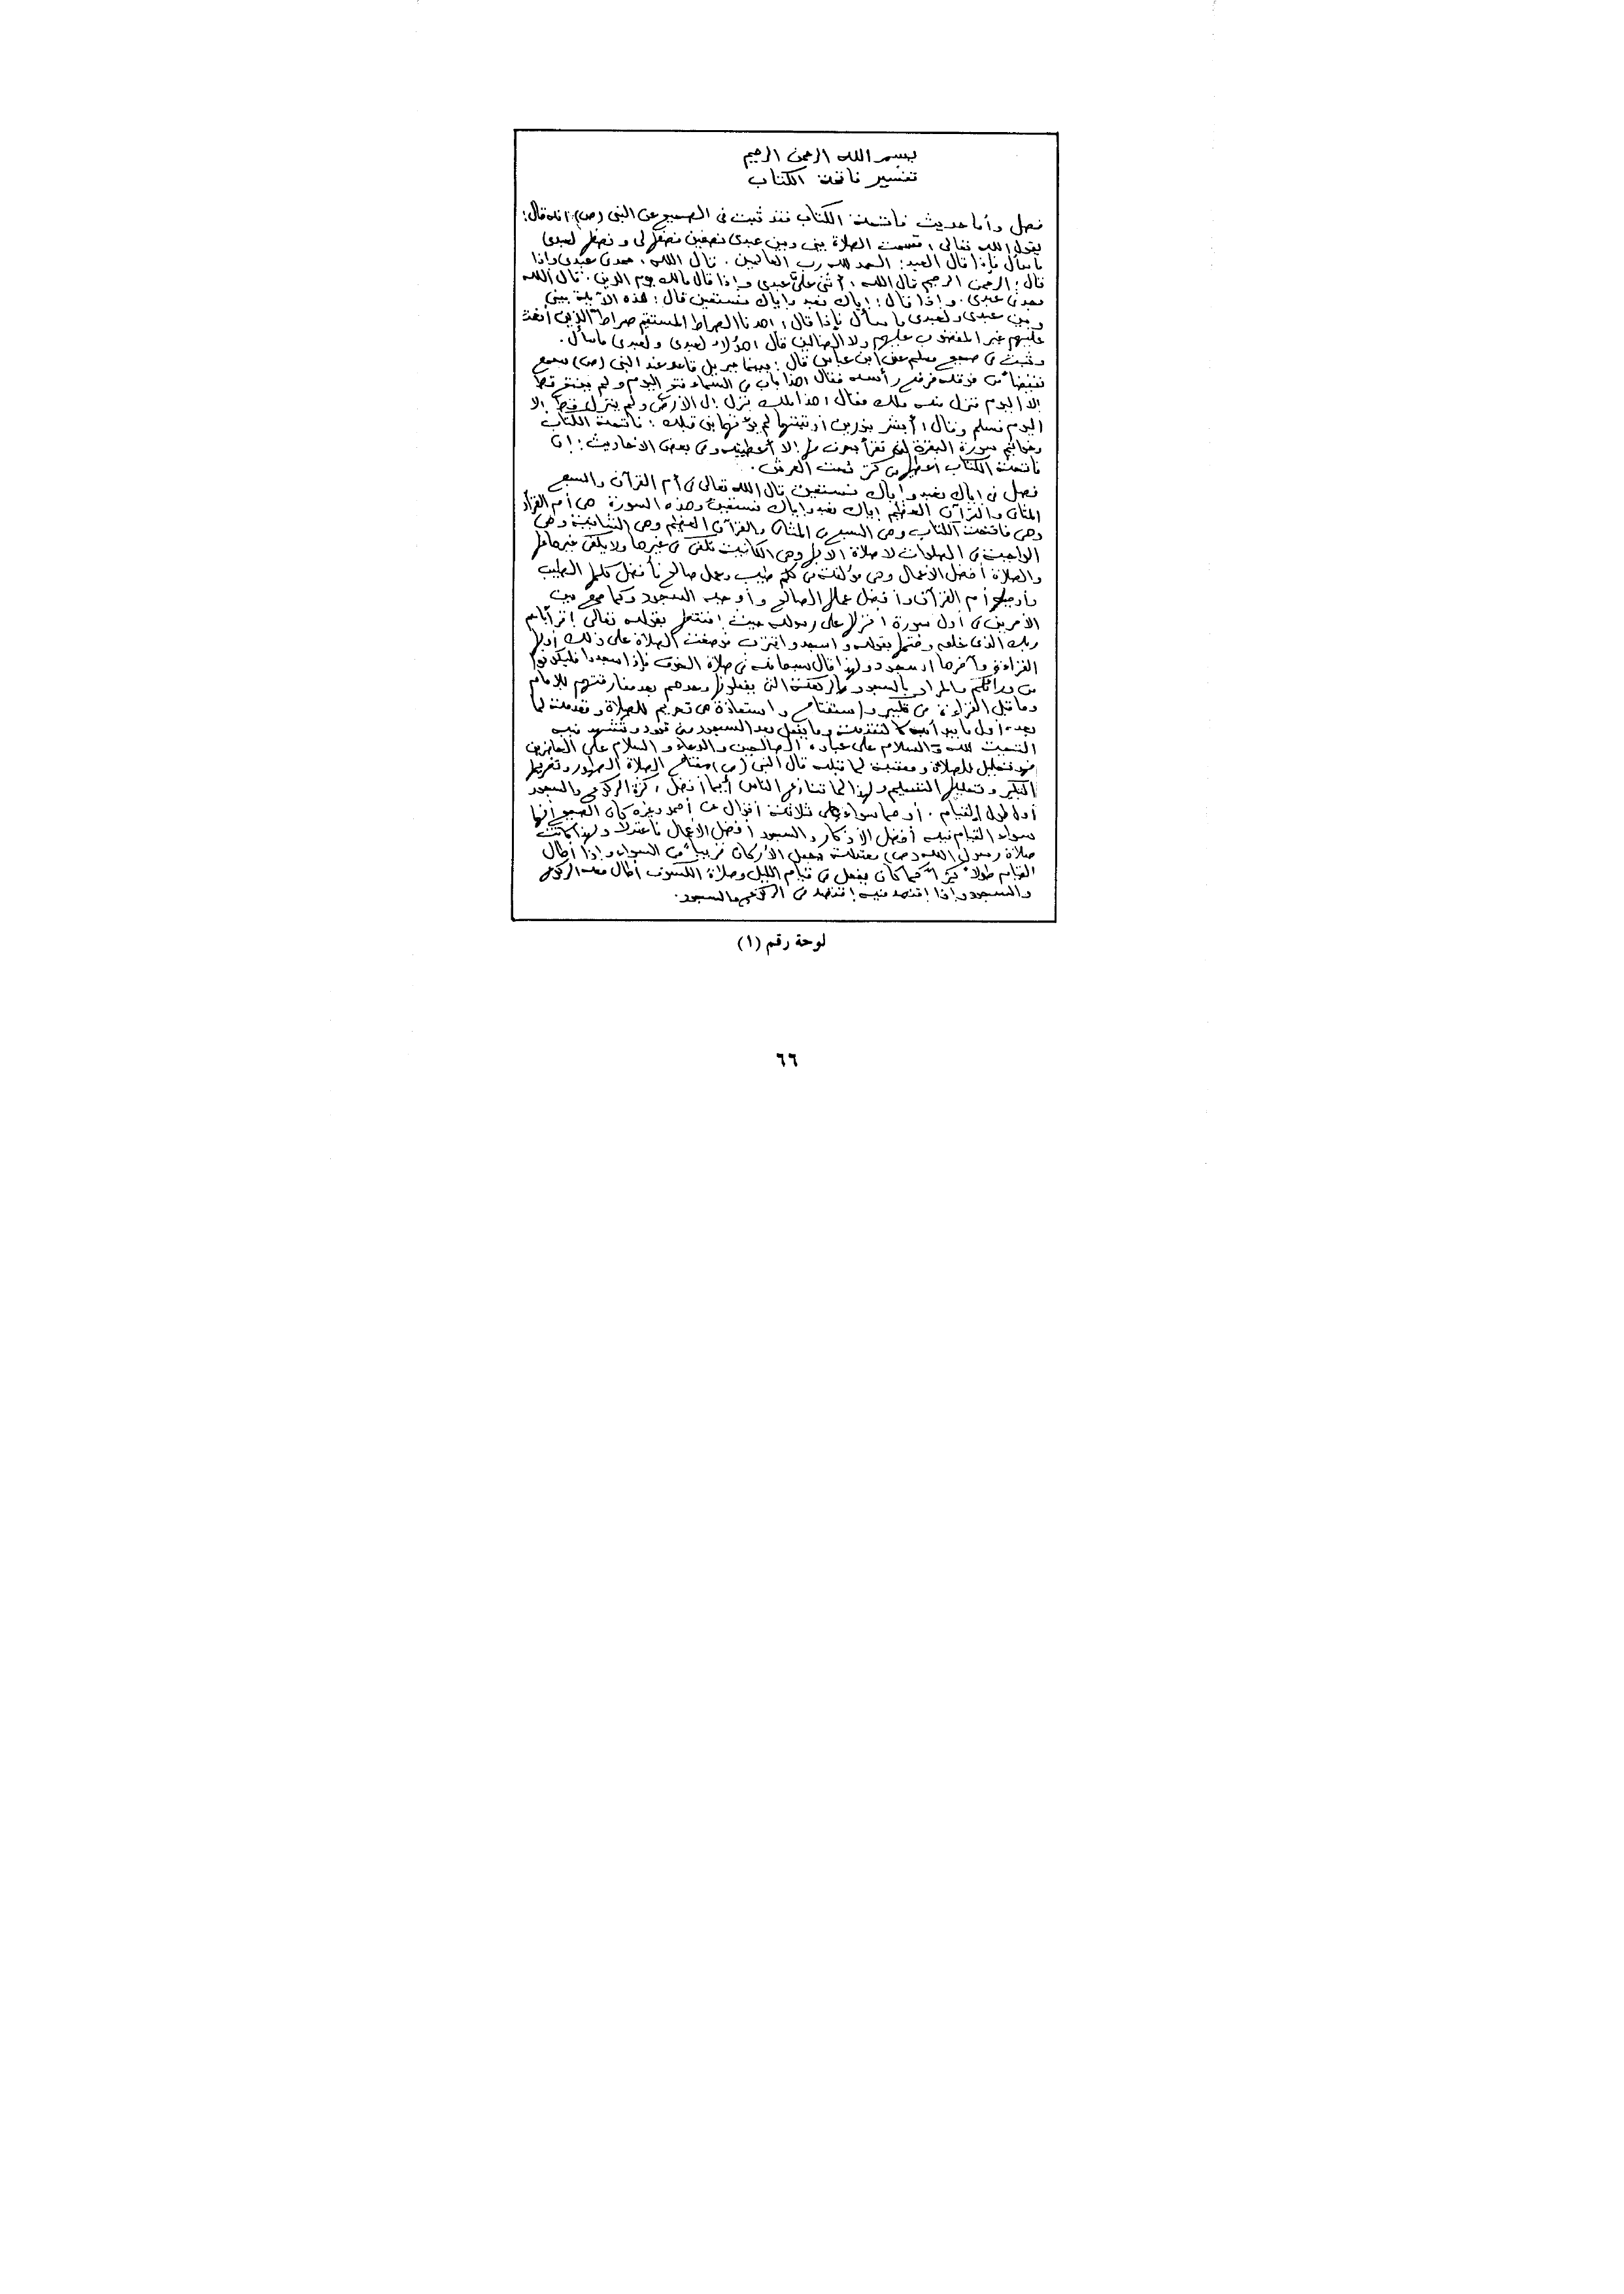 بسم الله الرحمن الرحيم
تفسير فاتحة الكتاب
فصل وأما حديث فاتحة الكتاب فقد ثبت فى الصحيح عن النبى (ص) انه قال:
يقول الله تعالى: قسمت الصلاة بينى وبين عبدى نصفين نصفها لى ونصفها لعبدى
ما سأل فإذا قال العبد: الحمد لله رب العالمين. قال الله: حمدنى عبدى وإذا
قال: الرحمن الرحيم قال الله: أثنى علىّ عبدى وإذا قال مالك يوم الدين. قال الله
مجدنى عبدى. وإذا قال: إياك نعبد وإياك نستعين قال: هذه الآية بينى
وبين عبدى ولعبدى ما سأل فإذا قال: اهدنا الصراط المستقيم صراط الذين أنعمت
عليهم غير المغضوب عليهم ولا الضالين قال هؤلاء لعبدى ولعبدى ما سأل.
وثبت فى صحيح مسلم عن ابن عباس قال: بينما جبريل قاعد عند النبى (ص) سمع
نقيضاً من فوقه فرفع رأسه فقال هذا باب من السماء فتح اليوم ولم يفتح قط
إلا اليوم فنزل منه ملك فقال هذا ملك نزل إلى الأرض ولم ينزل قط إلا
اليوم فسلم وقال: أبشر بنورين أوتيتهما لم يؤتهما نبى قبلك: فاتحة الكتاب
وخواتيم سورة البقرة لن تقرأ بحرف منها إلا أعطيته وفى بعض الأحاديث: إن
فاتحة الكتاب أعطيها من كنز تحت العرش.
فصل فى إياك نعبد وإياك نستعين قال الله تعالى فى أم القرآن والسبع
المثانى والقرآن العظيم إياك نعبد وإياك نستعين وهذه السورة هى أم القرآن
وهى فاتحة الكتاب وهى السبع من المثانى والقرآن العظيم وهى الشافية وهى
الواجبة فى الصلوات لا صلاة إلا بها وهى الكافية تكفى من غيرها ولا يكفى غيرها عنها
والصلاة أفضل الأعمال وهى مؤلفة من كلم طيب وعمل صالح فأفضل كلمها الطيب
وأوجبه أم القرآن وأفضل عملها الصالح وأوجبه السجود وكما جمع بين
الأمرين فى أول سورة أنزلها على رسوله حيث افتتحها بقوله تعالى اقرأ باسم
ربك الذى خلق وختمها بقوله واسجد واقترب فوضعت الصلاة على ذلك أولها
القراءة وآخرها السجود ولهذا قال سبحانه فى صلاة الخوف فإذا سجدوا فليكونوا
من ورائكم والمراد بالسجود الركعة التى يفعلونها وحدهم بعد مفارقتهم للإمام
وما قبل القراءة من تكبير واستفتاح واستعاذة هى تحريم للصلاة ومقدمة لما
بعده أول ما كالتقدمة وما يفعل بعد السجود من قعود وتشهد فيه
التحية لله والسلام على عباده الصالحين والدعاء والسلام على الحاضرين
فهو تحليل للصلاة ومعقبة لما قبله قال النبى (ص) مفتاح الصلاة الطهور وتحريمها
التكبير وتحليلها التسليم ولهذا لما تنازع الناس أيما أفضل: كثرة الركوع والسجود
أو طول القيام. أو هما سواء على ثلاثة أقوال عن أحمد وغيره كان الصحيح أنهما
سواء القيام فيه أفضل الأذكار والسجود أفضل الأعمال فاعتدلا ولهذا كانت
صلاة رسول الله (ص) معتدلة يجعل الأركان قريباً من السواء وإذا أطال
القيام طولاً كثيراً كما كان يفعل فى قيام الليل وصلاة الكسوف أطال معه الركوع
والسجود وإذا اقتصد فيه اقتصد فى الركوع والسجود.
لوحة رقم (١)
٦٦